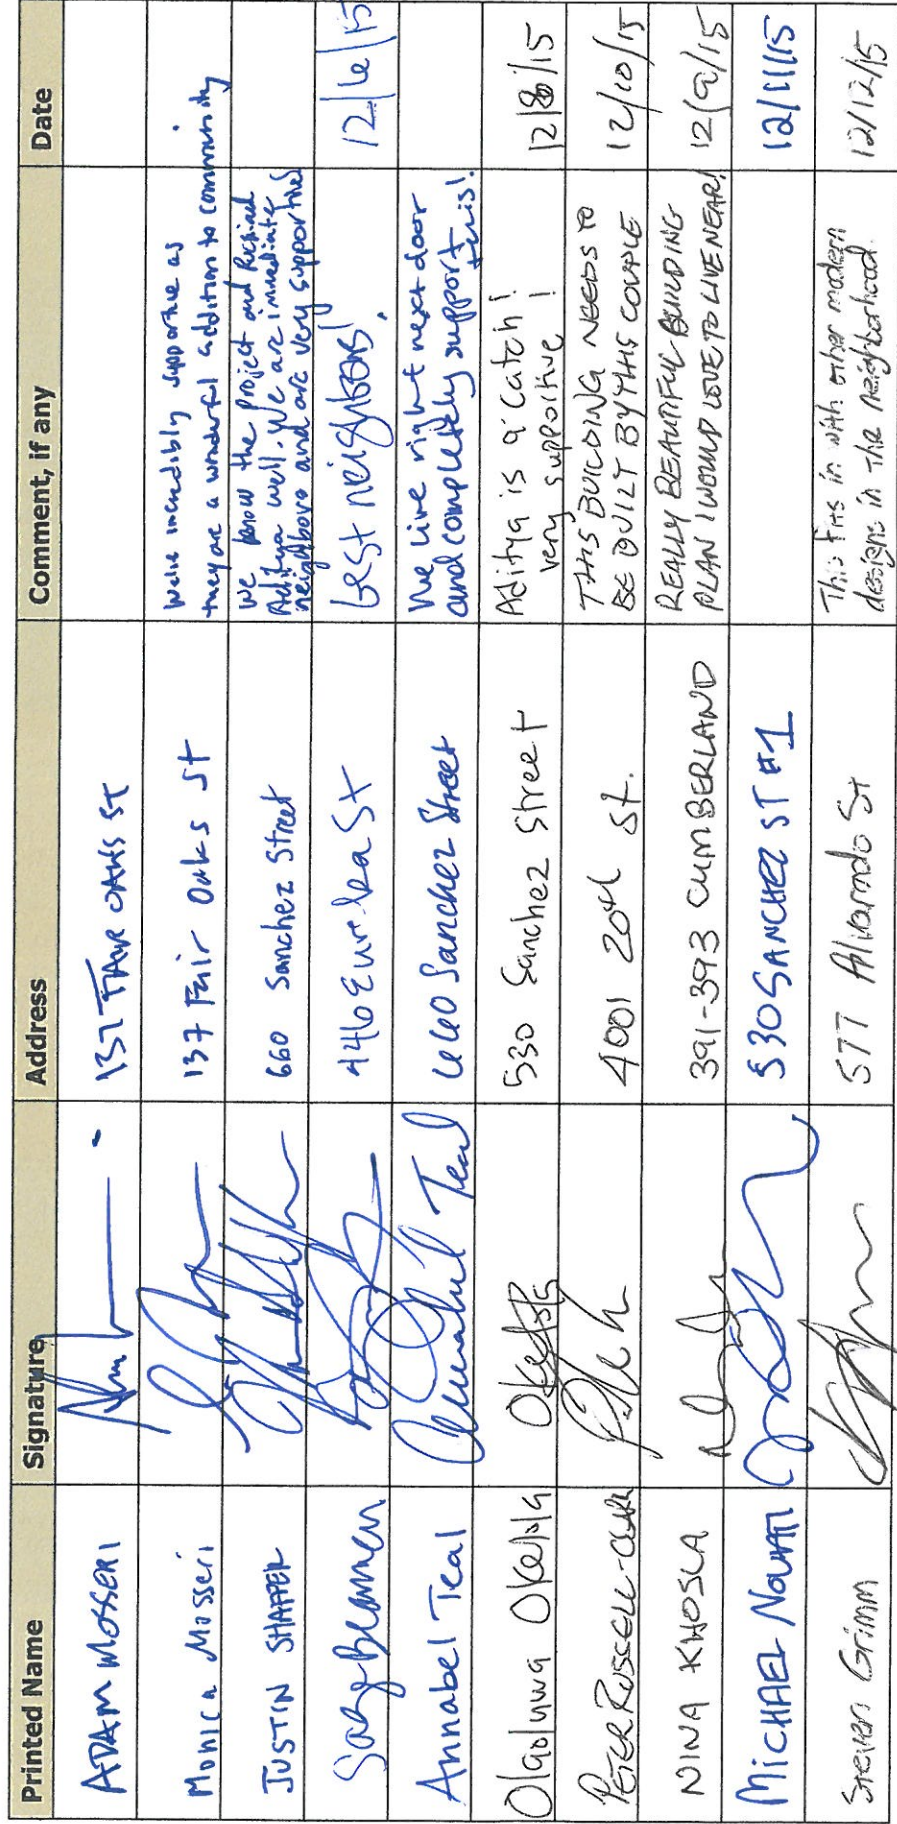 Printed Name Signature Address Comment, if any Date
ADAM MOSSERI 137 FAIR OAKS ST
Monica Mosseri 137 Fair Oaks St We're incredibly supportive as
they are a wonderful addition to community.
JUSTIN SHAFFER 660 Sanchez Street We know the project and
Aditya well. We are immediate
neighbors and are very supportive
446 Eureka St best neighbors! 12/6/15
Annabel Teal Annabel Teal 660 Sanchez Street We live right next door
and completely support
this!
Olaoluwa Okelola 530 Sanchez Street Aditya is a catch!
very supportive! 12/8/15
PETER RUSSELL-CLARKE 4001 20th St. THIS BUILDING NEEDS TO
BE BUILT BY THIS COUPLE 12/10/15
NINA KHOSLA 391-393 CUMBERLAND REALLY BEAUTIFUL BUILDING
PLAN I WOULD LOVE TO LIVE NEAR! 12/9/15
MICHAEL 530 SANCHEZ ST #1 12/11/15
Steven Grimm 577 Alvarado St This fits in with other modern
designs in the neighborhood. 12/12/15